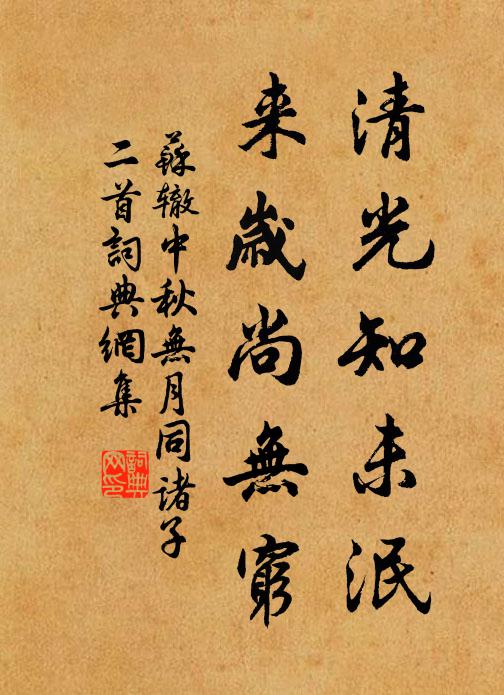 清光知未泯
来歲尚無窮
蘇辙中秋無月同諸子
二首詞典網集
詞典
网印